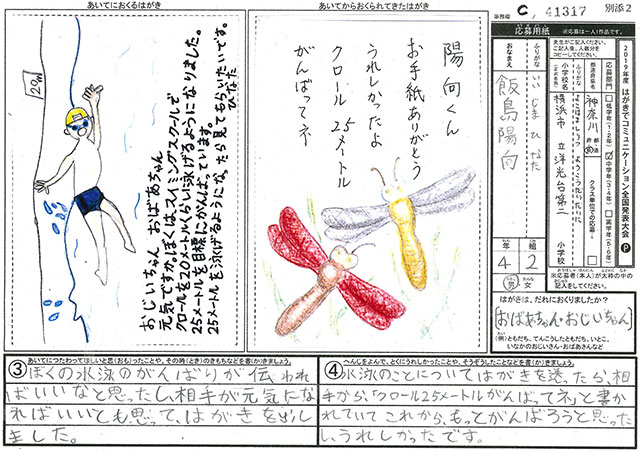 あいてにおくるはがき
20m
おじいちゃん おばあちゃん
元気ですか。ぼくは、スイミングスクールで
クロールを20メートルくらい泳げるようになりました。
25メートルを目標にがんばっています。
25メートルを泳げるようになったら見てもらいたいです。
ひなた
あいてからおくられてきたはがき
陽向くん
お手紙ありがとう
うれしかったよ
クロール 25メートル
がんばってネ
事務欄
C, 41317
別添2
2019年度 はがきでコミュニケーション全国発表大会 P
応募用紙
※応募は一人1作品です。
応募部門
低学年(1・2年)
中学年(3・4年)
高学年(5・6年)
都道府県名
神奈川
クラス単位での応募
ふりがな
小学校名
横浜市 立洋光台第二
小学校
ふりがな
いいじま ひなた
おなまえ
飯島陽向
4
年
2
組
男・女
※応募者(本人)が太枠の中の記入をしてください。
はがきは、だれにおくりましたか?
[おばあちゃん・おじいちゃん]
(例)ともだち、てんこうしたともだち、いとこ、
いなかのおじいさん・おばあさんなど
あいてにつたわってほしいと思(おも)ったことや、その時(とき)のきもちなどを書(か)きましょう。
③ぼくの水泳のがんばりが伝われ
ばいいなと思ったし、相手が元気にな
ればいいとも思って、はがきを出し
ました。
へんじをよんで、とくにうれしかったことや、そうぞうしたことなどを書(か)きましょう。
④水泳のことについてはがきを送ったら、相
手から、「クロール25メートルがんばってネ」と書か
れていてこれから、もっとがんばろうと思った
し、うれしかったです。